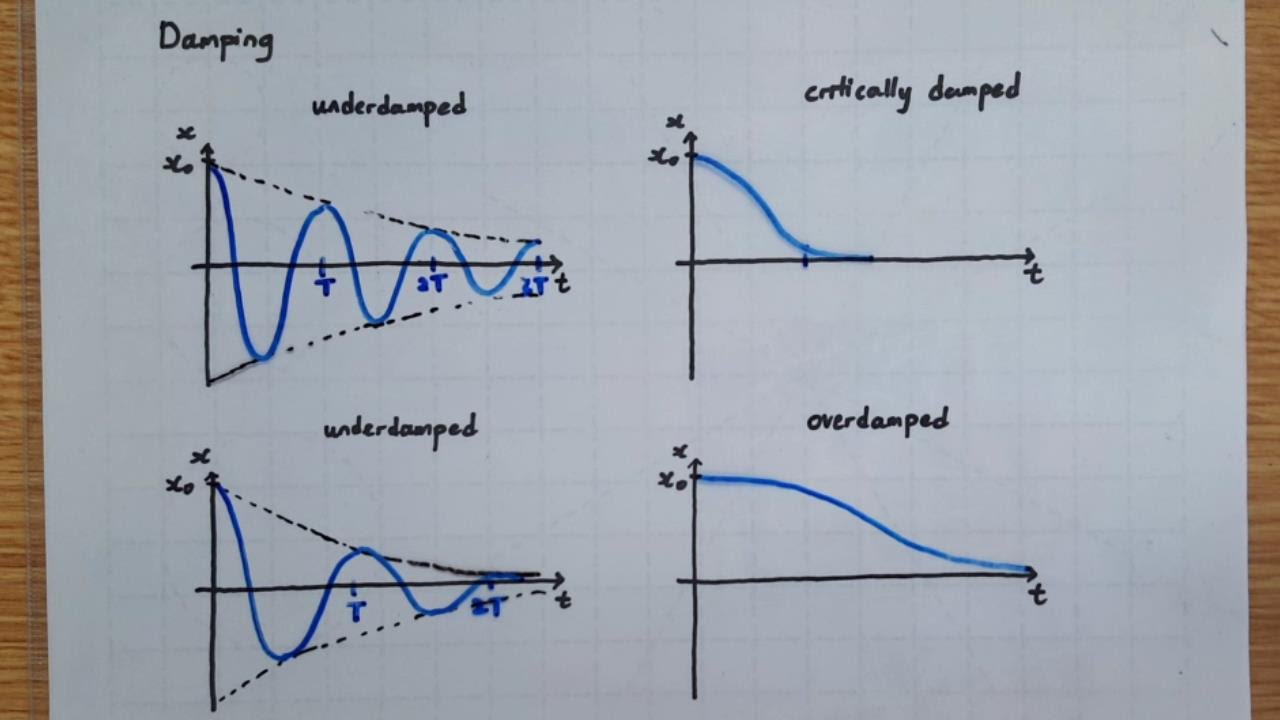 Damping
underdamped
x
x₀
T
2T
3T
t
critically damped
x
x₀
t
underdamped
x
x₀
T
2T
t
overdamped
x
x₀
t